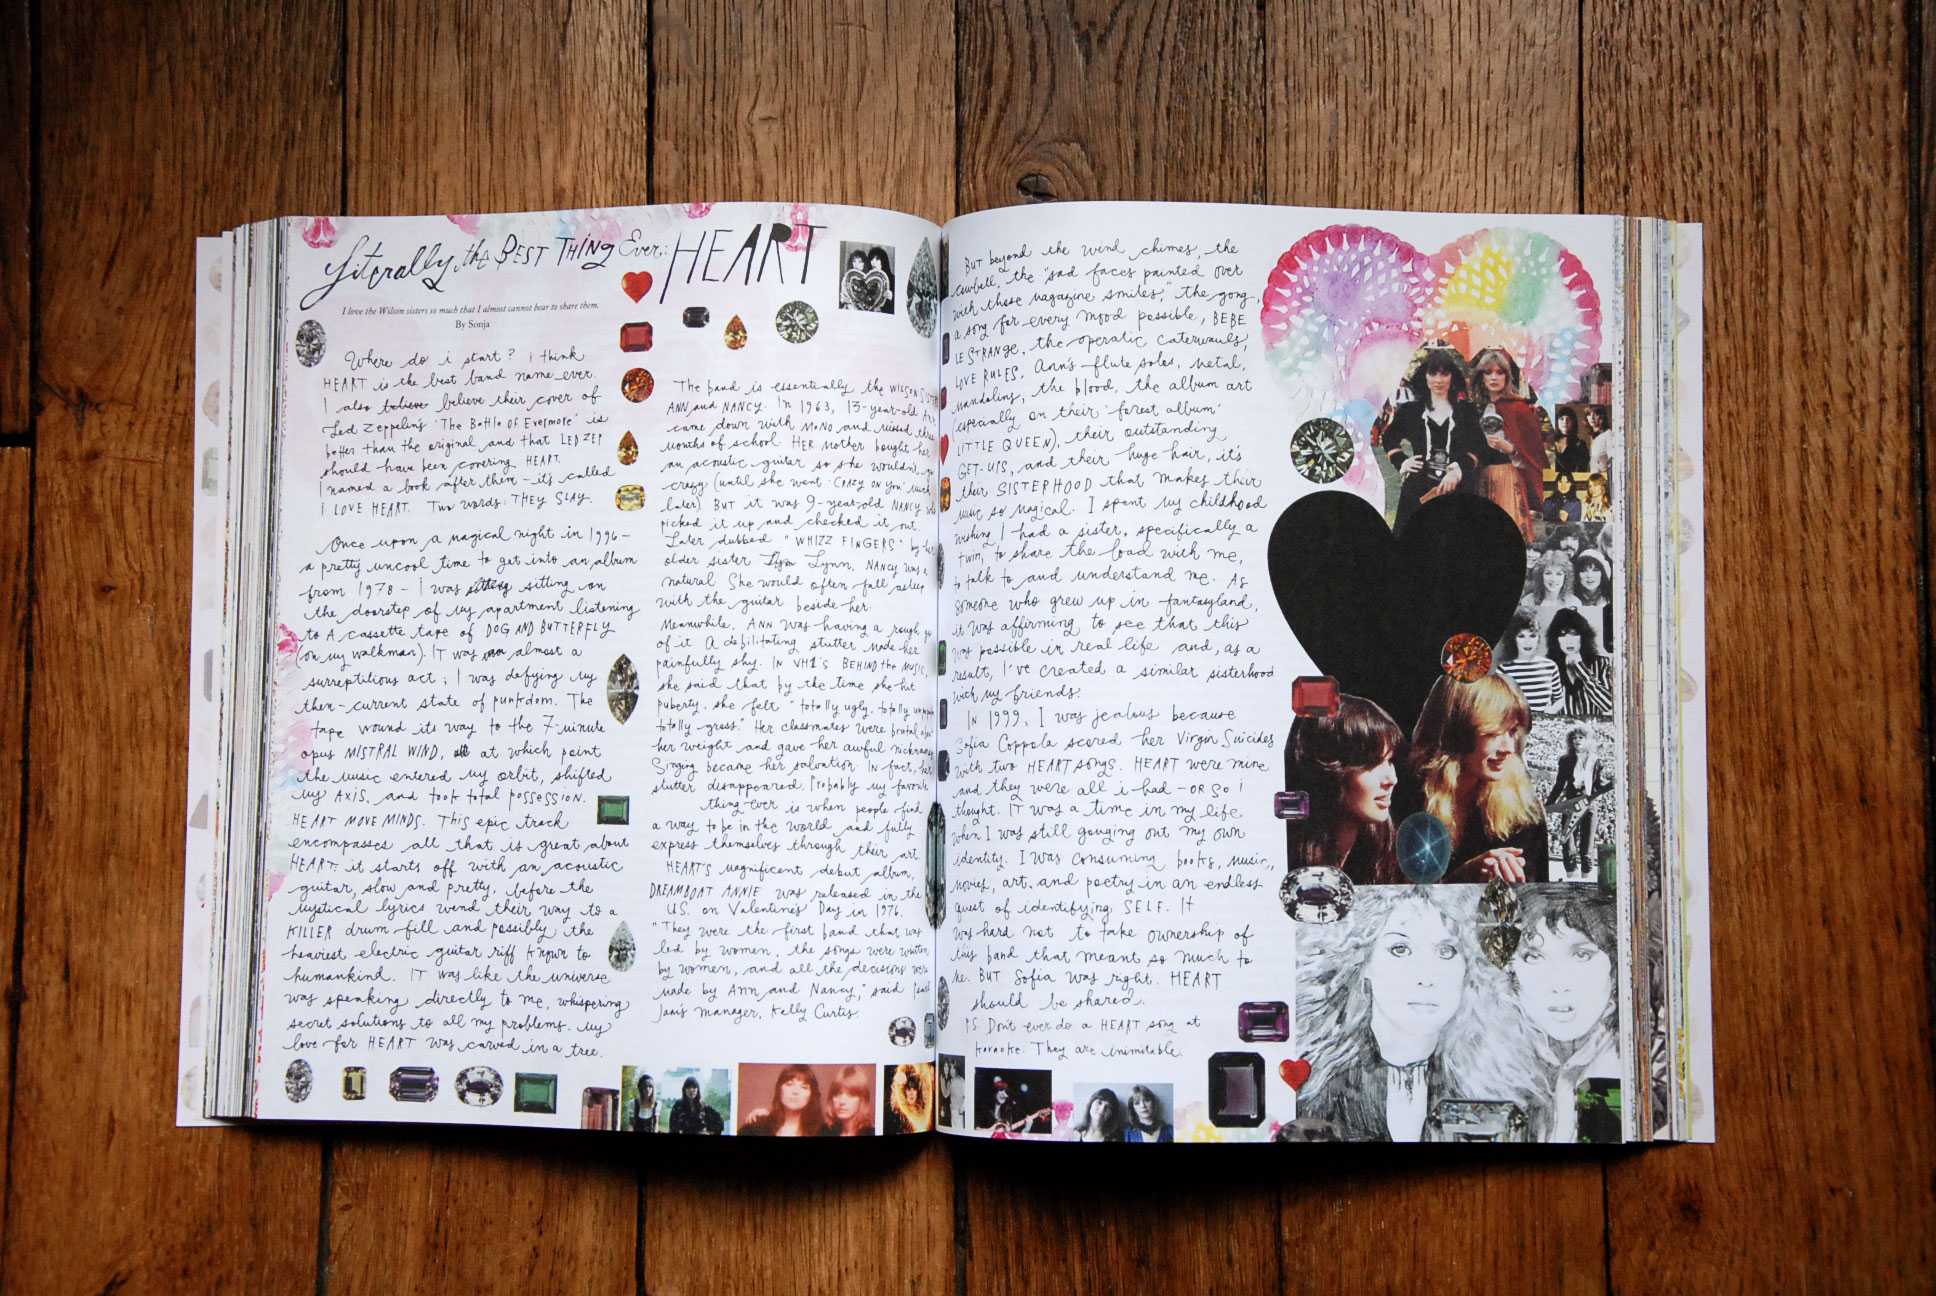 Literally the BEST THING Ever: HEART
I love the Wilson sisters so much that I almost cannot bear to share them.
By Sonja
Where do i start? i think
HEART is the best band name ever.
I also believe believe their cover of
Led Zeppelin's 'The Battle of Evermore' is
better than the original and that LED ZEP
should have been covering HEART.
I named a book after them – it's called
I LOVE HEART. Two words: THEY SLAY.
Once upon a magical night in 1996 –
a pretty uncool time to get into an album
from 1978 – I was sitting on
the doorstep of my apartment listening
to A cassette tape of DOG AND BUTTERFLY
(on my walkman). IT was almost a
surreptitious act; I was defying my
then-current state of punkdom. The
tape wound its way to the 7-minute
opus MISTRAL WIND, at which point
the music entered my orbit, shifted
my AXIS, and took total possession.
HEART MOVE MINDS. This epic track
encompasses all that is great about
HEART: it starts off with an acoustic
guitar, slow and pretty, before the
mystical lyrics wend their way to a
KILLER drum fill and possibly the
heaviest electric guitar riff known to
humankind. IT was like the universe
was speaking directly to me, whispering
secret solutions to all my problems. My
love for HEART was carved in a tree.
The band is essentially the WILSON
ANN and NANCY. In 1963, 13-year-old Ann
came down with MONO and missed three
months of school. HER mother bought her
an acoustic guitar so she wouldn't go
crazy (until she went 'CRAZY ON YOU' much
later) BUT it was 9-year-old NANCY who
picked it up and checked it out.
Later dubbed "WHIZZ FINGERS" by her
older sister Lynn, NANCY was a
natural She would often fall asleep
with the guitar beside her.
Meanwhile, ANN was having a rough go
of it A debilitating stutter made her
painfully shy. IN VH1'S BEHIND the MUSIC,
she said that by the time she hit
puberty, she felt "totally ugly, totally
totally gross." Her classmates were brutal about
her weight and gave her awful nicknames
Singing became her salvation IN fact, her
stutter disappeared. Probably my favorite
thing ever is when people find
a way to be in the world and fully
express themselves through their art.
HEART'S magnificent debut album,
DREAMBOAT ANNIE was released in the
U.S. on Valentine's Day in 1976.
"They were the first band that was
led by women, the songs were written
by women, and all the decisions were
made by Ann and Nancy," said
manager, Kelly Curtis.
BUT beyond the wind chimes, the
cowbell, the "sad faces painted over
with those magazine smiles," the gong,
a song for every mood possible, BEBE
LE STRANGE, the operatic caterwauls,
LOVE RULES, Ann's flute solos, metal,
mandolins, the blood, the album art
(especially on their 'forest album'
LITTLE QUEEN), their outstanding
GET-UPS, and their huge hair, it's
their SISTERHOOD that makes their
music so magical. I spent my childhood
wishing I had a sister, specifically a
twin, to share the load with me,
to talk to and understand me. As
someone who grew up in fantasyland,
it was affirming to see that this
was possible in real life and, as a
result, I've created a similar sisterhood
with my friends.
IN 1999, I was jealous because
Sofia Coppola scored her Virgin Suicides
with two HEART songs. HEART were mine
and they were all i had – OR SO I
thought. IT was a time in my life
when I was still gouging out my own
identity. I was consuming books, music,
movies, art, and poetry in an endless
quest of identifying SELF. It
was hard not to take ownership of
this band that meant so much to
me. BUT Sofia was right. HEART
should be shared.
PS Don't ever do a HEART song at
karaoke. They are inimitable.